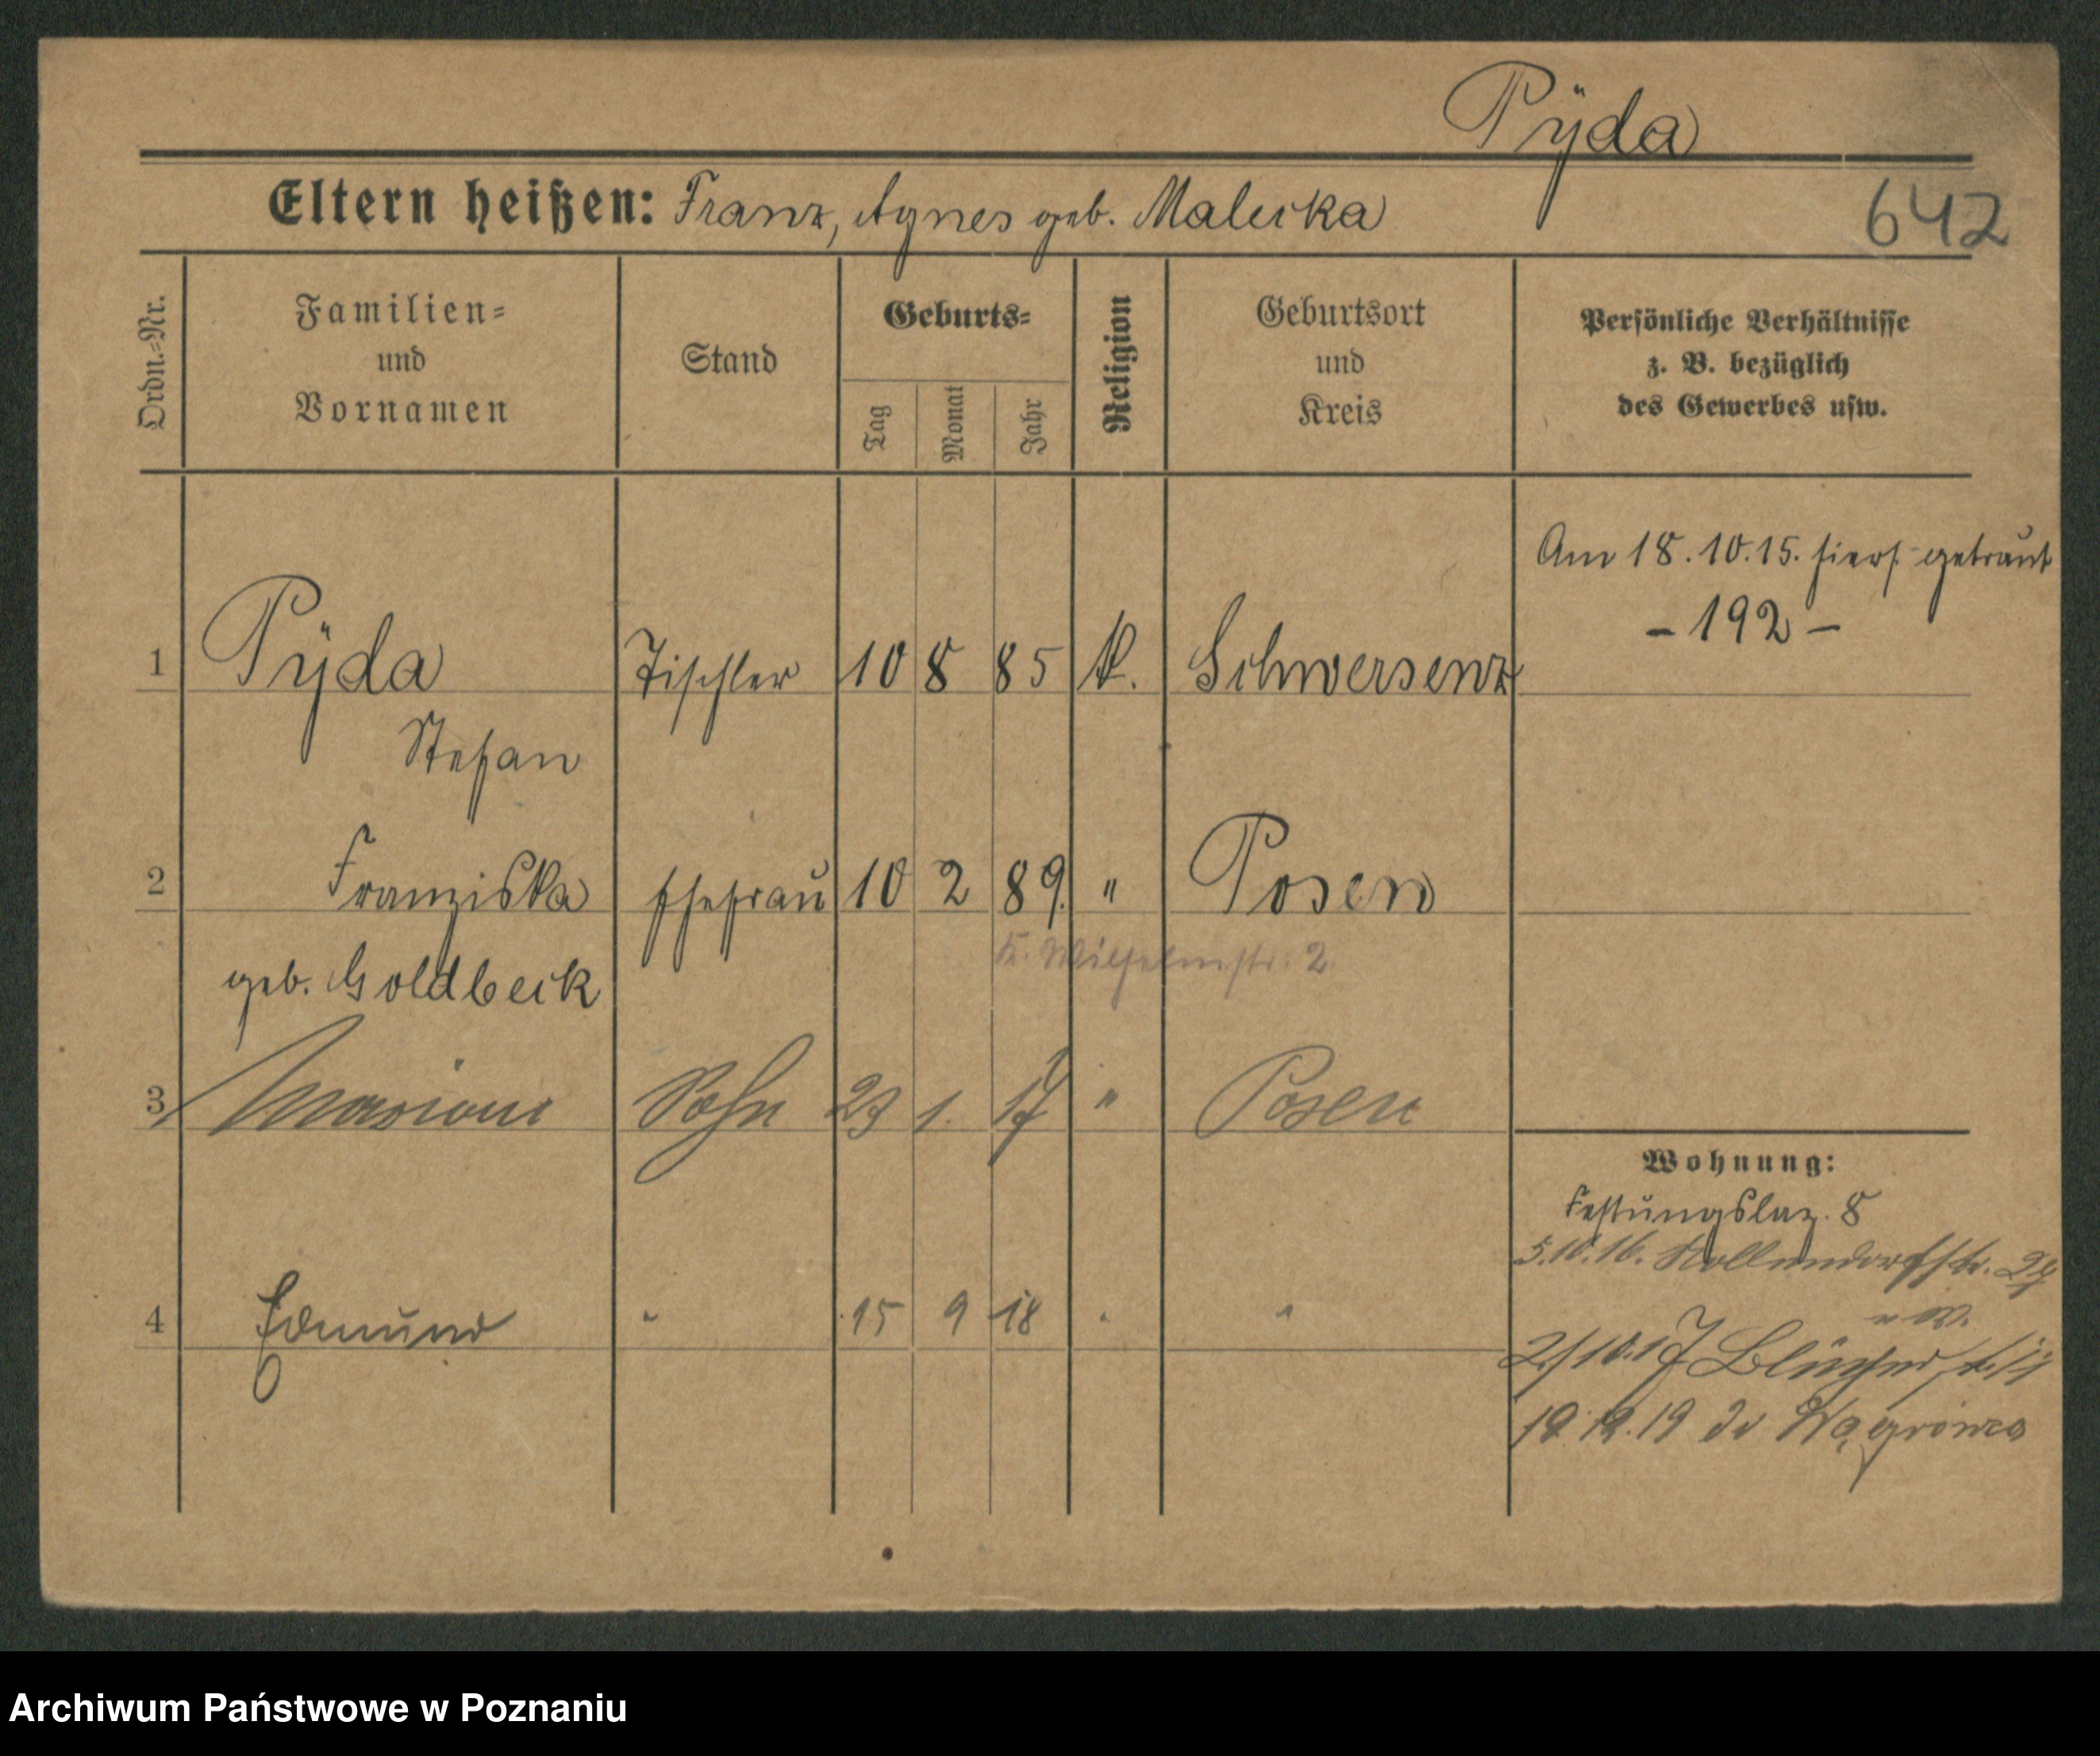 Pÿda
Eltern heißen: Franz, Agnes geb. Malecka
642
Ordn.=Nr.
Familien=
und
Vornamen
Stand
Geburts=
Tag
Monat
Jahr
Religion
Geburtsort
und
Kreis
Persönliche Verhältnisse
z. B. bezüglich
des Gewerbes usw.
Am 18.10.15. hiers. getraut
- 192 -
1 Pÿda Tischler 10 8 85 k. Schwersenz
Stefan
2 Franziska Ehefrau 10 2 89. " Posen
K. Wilhelmstr. 2
geb. Goldbeck
3 Mariann Sohn 23 1. 17 " Posen
Wohnung:
Festungslaz. 8
5.10.16. Kollendorfstr. 27
4 Edmund " 15 9 18 " "
2/10.17 Blücherstr.
19 do Wągrówca
Archiwum Państwowe w Poznaniu